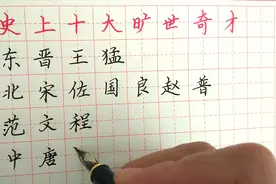 史上十大旷世奇才
东晋王猛
北宋佐国良赵普
范文程
中唐